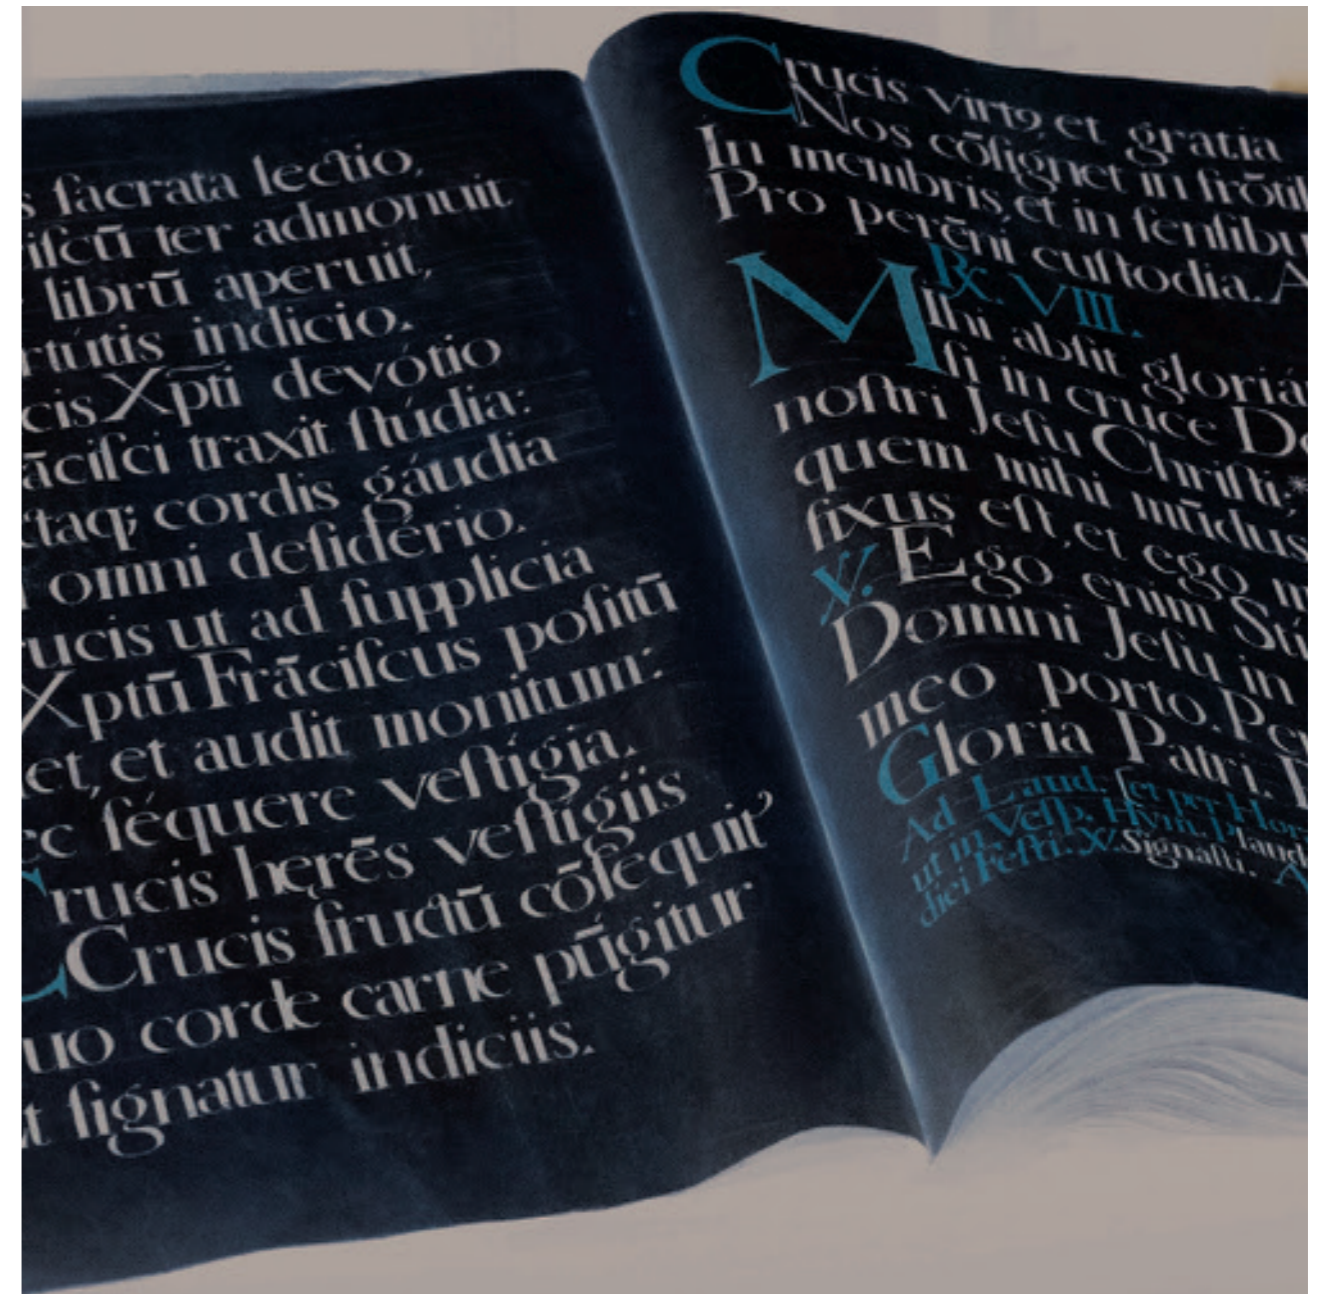 s ſacrata lectio,
iſcū ter admonuit
librū aperuit,
rtútis indicio.
cis Xpti devótio
āciſci traxit ſtúdia:
ctaq; cordis gáudia
omni deſidério.
rucis ut ad ſupplicia
Xptū Frāciſcus poſitū
et, et audit monitum:
ec ſéquere veſtígia.
Crucis herēs veſtigiis
Crucis fructū cōſequit
uo corde carne pūgitur
t ſignatur indiciis.
Crucis virtꝰ, et gratia
Nos cōſignet in frōtib
In membris, et in ſenſibu
Pro perēni cuſtodia. A
℟. VIII.
MIhi abſit gloriá
ſi in cruce Do
noſtri Jeſu Chriſti;*
quem mihi mūdus
fixus eſt, et ego m
℣. Ego enim Stí
Domini Jeſu in
meo porto. Per
Gloria Patri. P
Ad Laud. et per Hor
ut in Veſp. Hym. Plaud
diei Feſti. ℣. Signaſti. A